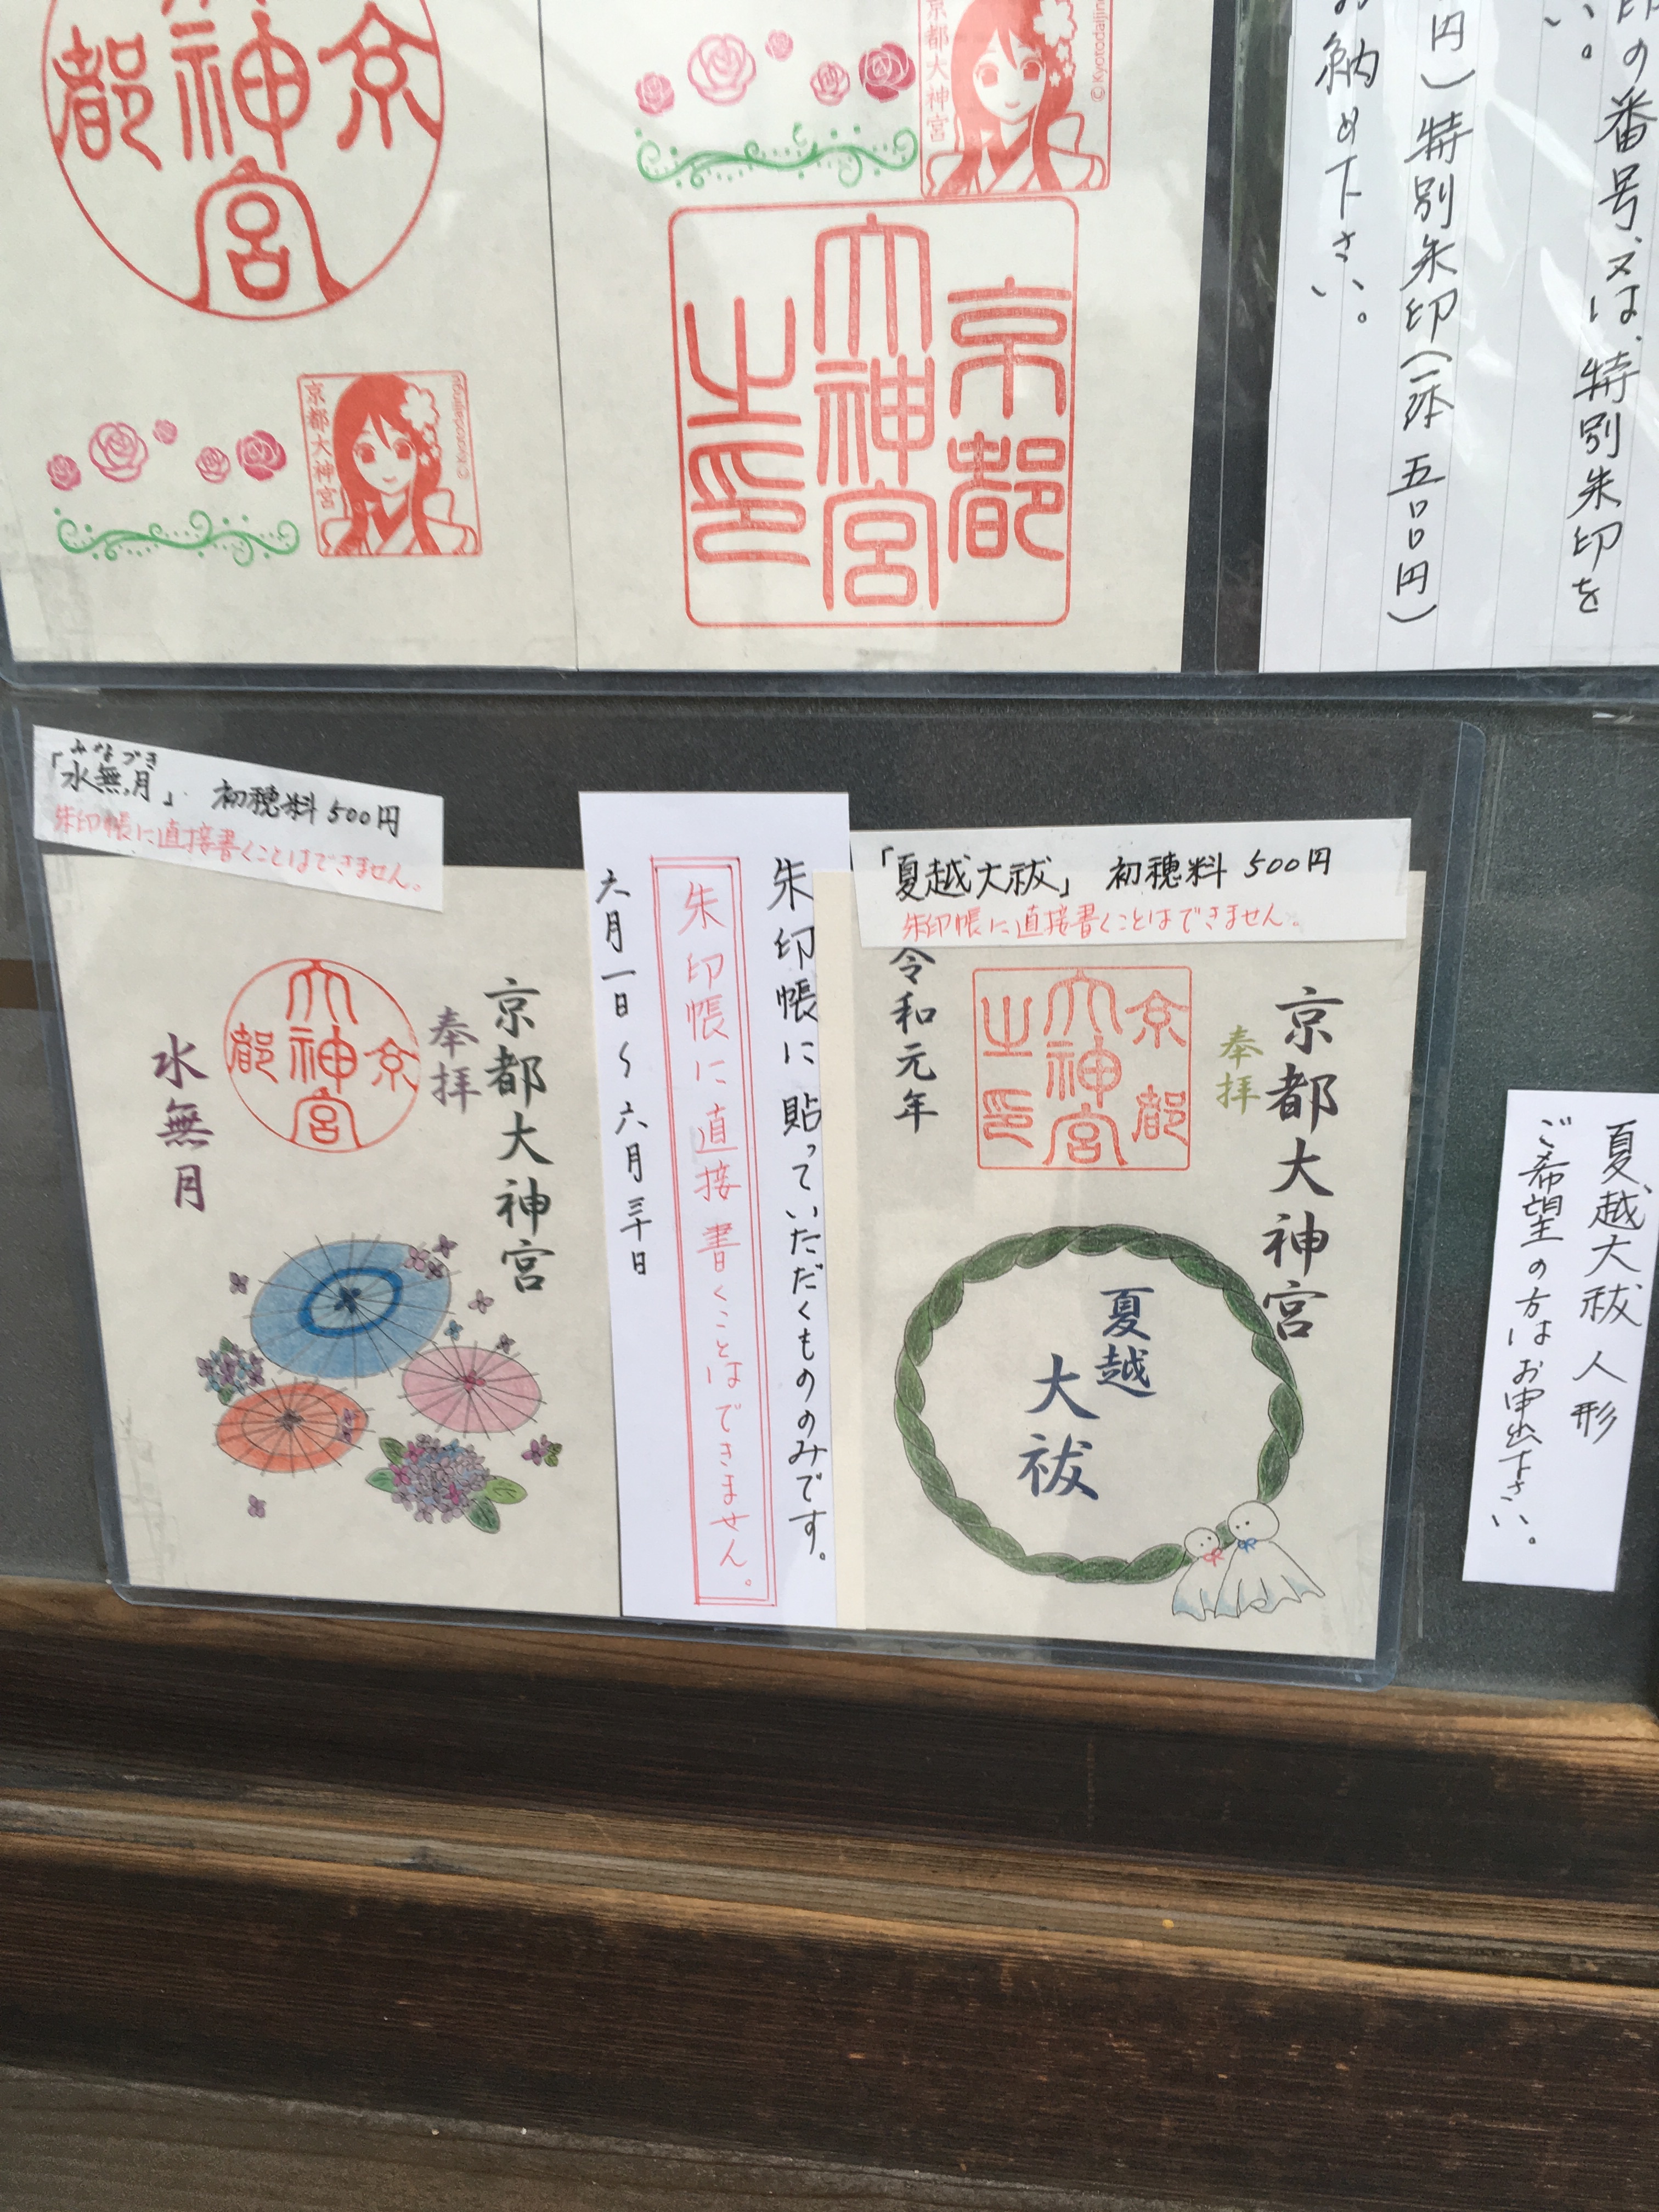 大神宮
京
都
京都大神宮
© Kyotodaijingu
京都大神宮
© Kyotodaijingu
京都
大神宮
之印
印の番号、又は、特別朱印を
い。
円)特別朱印(一体 五〇〇円)
お納め下さい。
みなづき
「水無月」 初穂料 500円
朱印帳に直接書くことはできません。
京都大神宮
奉拝
大神宮
京
都
水無月
朱印帳に貼っていただくもののみです。
朱印帳に直接書くことはできません。
六月一日〜六月三十日
「夏越大祓」 初穂料 500円
朱印帳に直接書くことはできません。
京都大神宮
奉拝
京都
大神宮
之印
令和元年
夏越
大祓
夏越大祓人形
ご希望の方はお申出下さい。